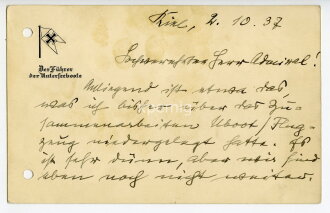 Kiel, 2.10.37
Der Führer
der Unterseeboote
Sehr verehrter Herr Admiral!
Anliegend ist etwa das,
was ich bisher über das Zu-
sammenarbeiten Uboot/Flug-
zeug niedergelegt hatte. Es
ist sehr dünn, aber wir sind
eben noch nicht weiter.